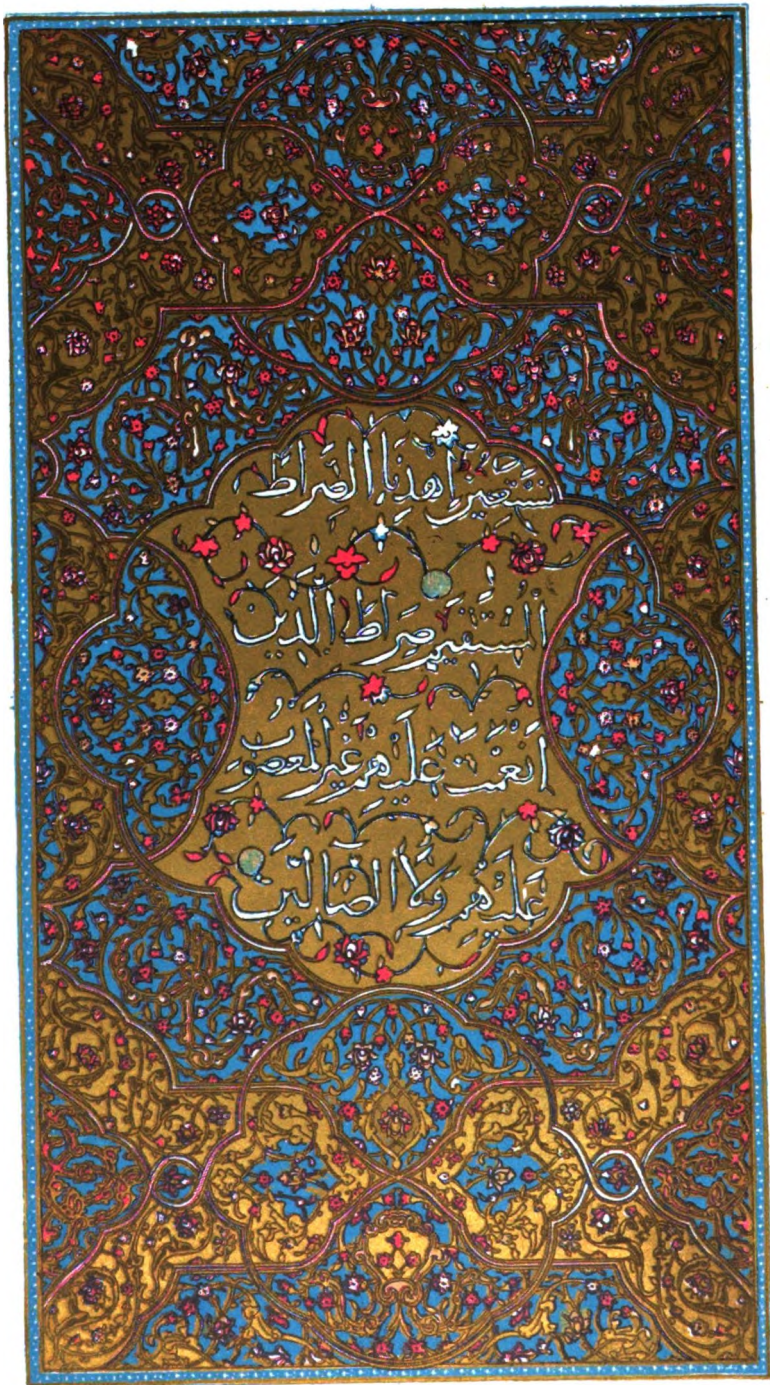 نَسْتَعِينُ اهْدِنَا الصِّرَاطَ
الْمُسْتَقِيمَ صِرَاطَ الَّذِينَ
اَنْعَمْتَ عَلَيْهِمْ غَيْرِ الْمَغْضُوبِ
عَلَيْهِمْ وَلَا الضَّالِّينَ